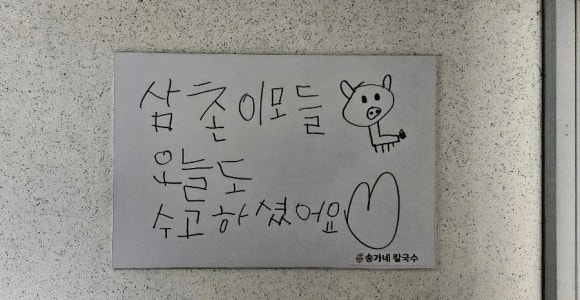 삼촌이모들
오늘도
수고하셨어요
송가네 칼국수